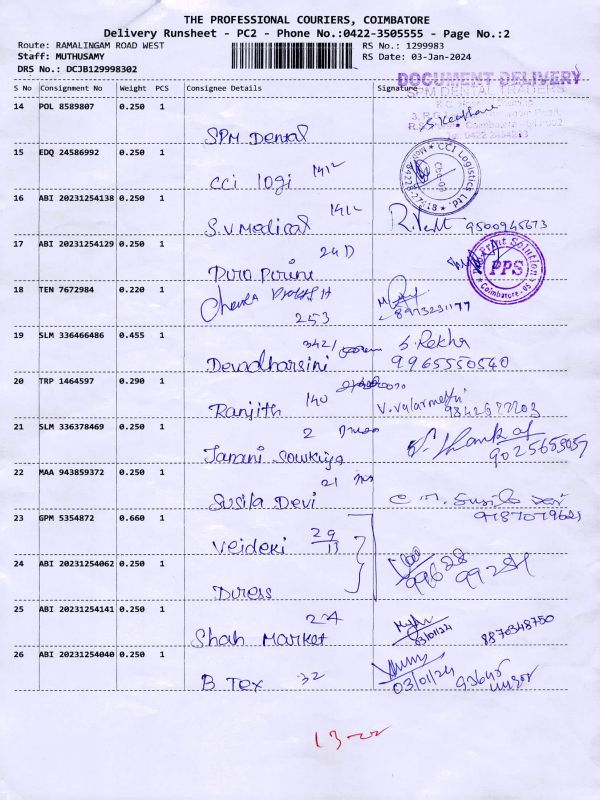 THE PROFESSIONAL COURIERS, COIMBATORE
Delivery Runsheet - PC2 - Phone No.:0422-3505555 - Page No.:2
Route: RAMALINGAM ROAD WEST
RS No.: 1299983
Staff: MUTHUSAMY
RS Date: 03-Jan-2024
DRS No.: DCJB129998302
DOCUMENT DELIVERY
S No Consignment No Weight PCS Consignee Details Signature
SPM DENTAL TRADERS
14 POL 8589807 0.250 1
SPM Dental
15 EDQ 24586992 0.250 1
CCI Logistics
CCI logi 1412
16 ABI 20231254138 0.250 1
1412
S.V Medical 9500945673
17 ABI 20231254129 0.250 1
PPS
Coimbatore
18 TEN 7672984 0.220 1
8973231177
253
19 SLM 336466486 0.455 1
342/ S. Rekha
Devadharsini 9965550540
20 TRP 1464597 0.290 1
Ranjith 140 V. Valarmathi
21 SLM 336378469 0.250 1
2
Janani Sowkiya
22 MAA 943859372 0.250 1
21
Susila Devi
23 GPM 5354872 0.660 1
29
Veideki 13
24 ABI 20231254062 0.250 1
99628 99284
Duress
25 ABI 20231254141 0.250 1
224
Shah Market 03/01/24 8870348750
26 ABI 20231254040 0.250 1
B Tex 32 03/01/24
13-22